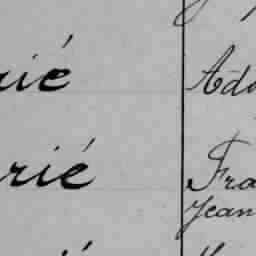 rié
Adu
rié
Fra
Jean